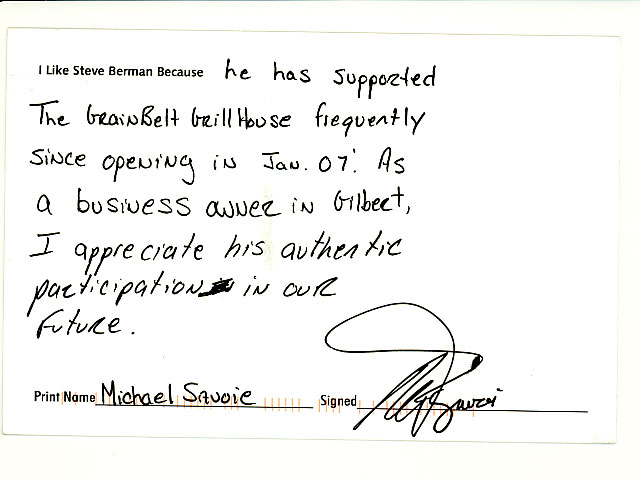 I Like Steve Berman Because he has supported
The GrainBelt GrillHouse frequently
since opening in Jan. 07'. As
a business owner in Gilbert,
I appreciate his authentic
participation in our
future.
Print Name Michael Savoie Signed